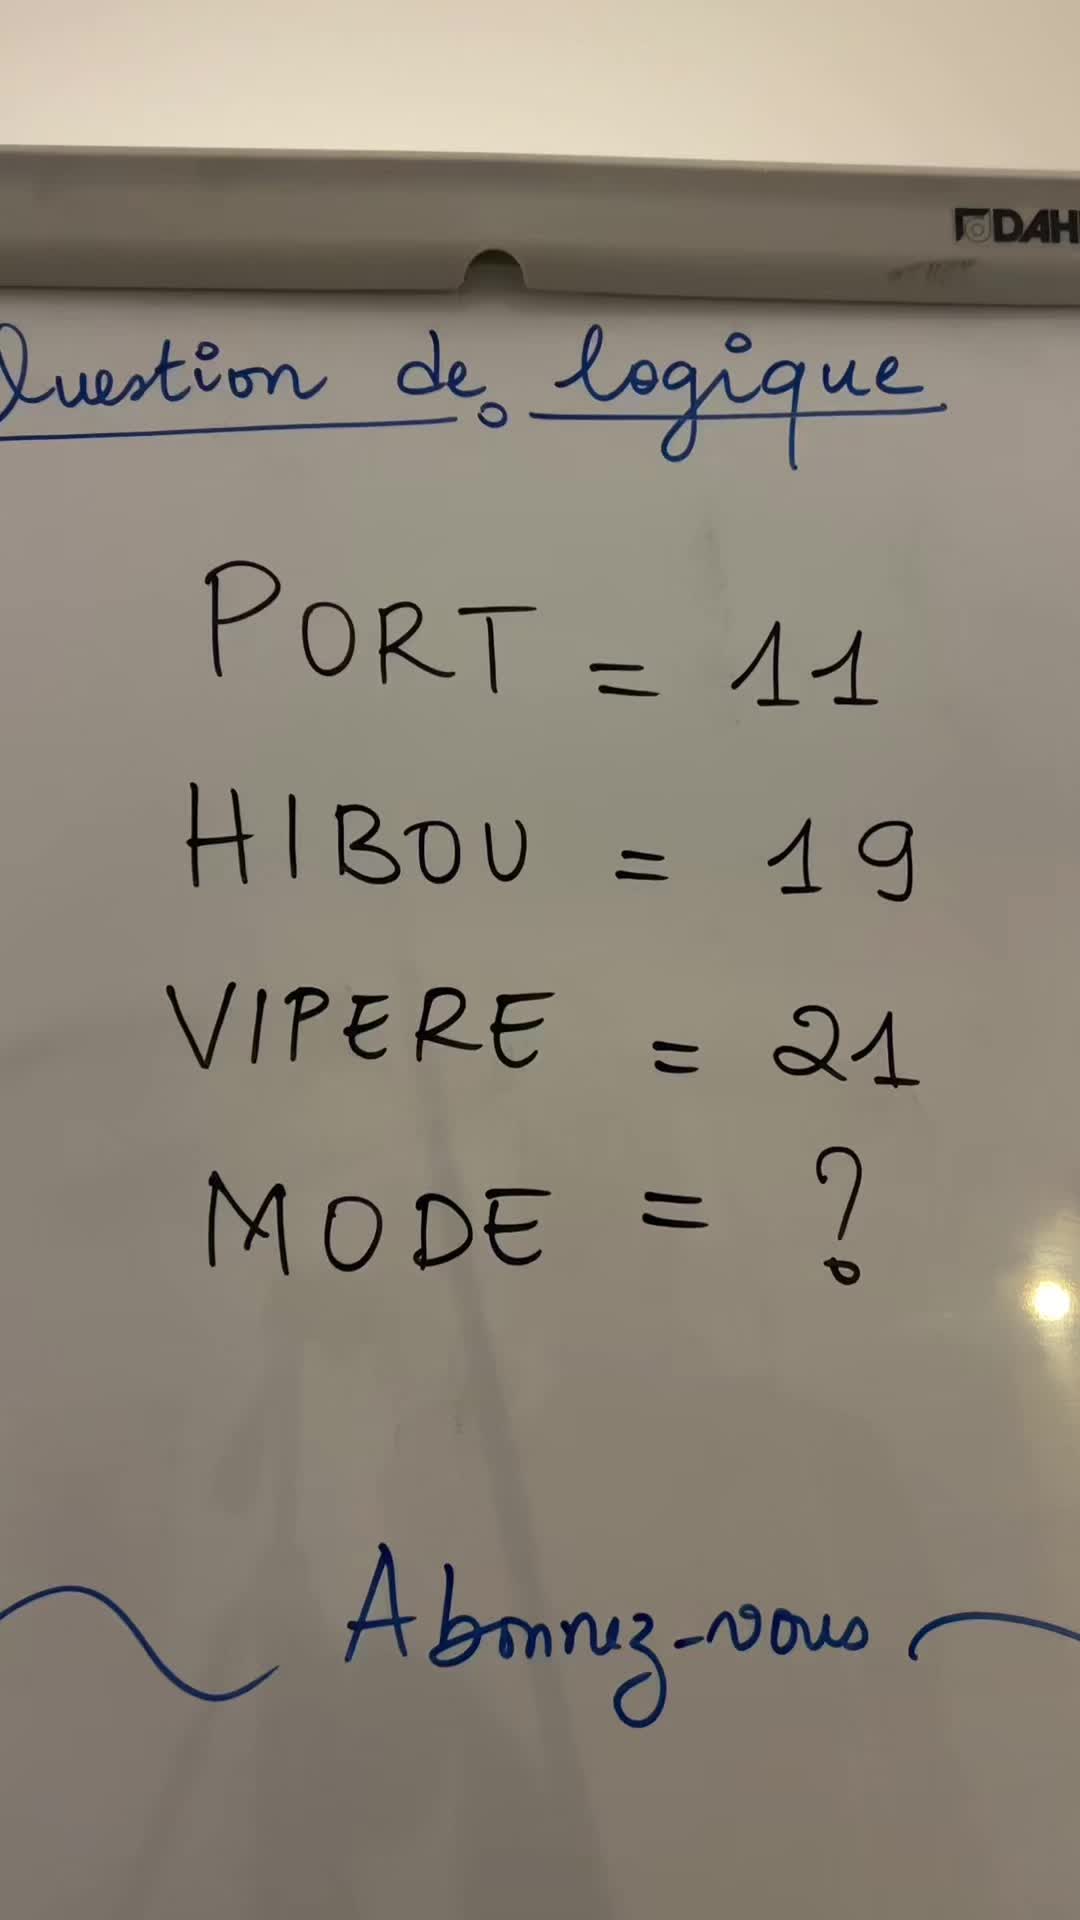 DAH
Question de logique
PORT = 11
HIBOU = 19
VIPERE = 21
MODE = ?
Abonnez-vous